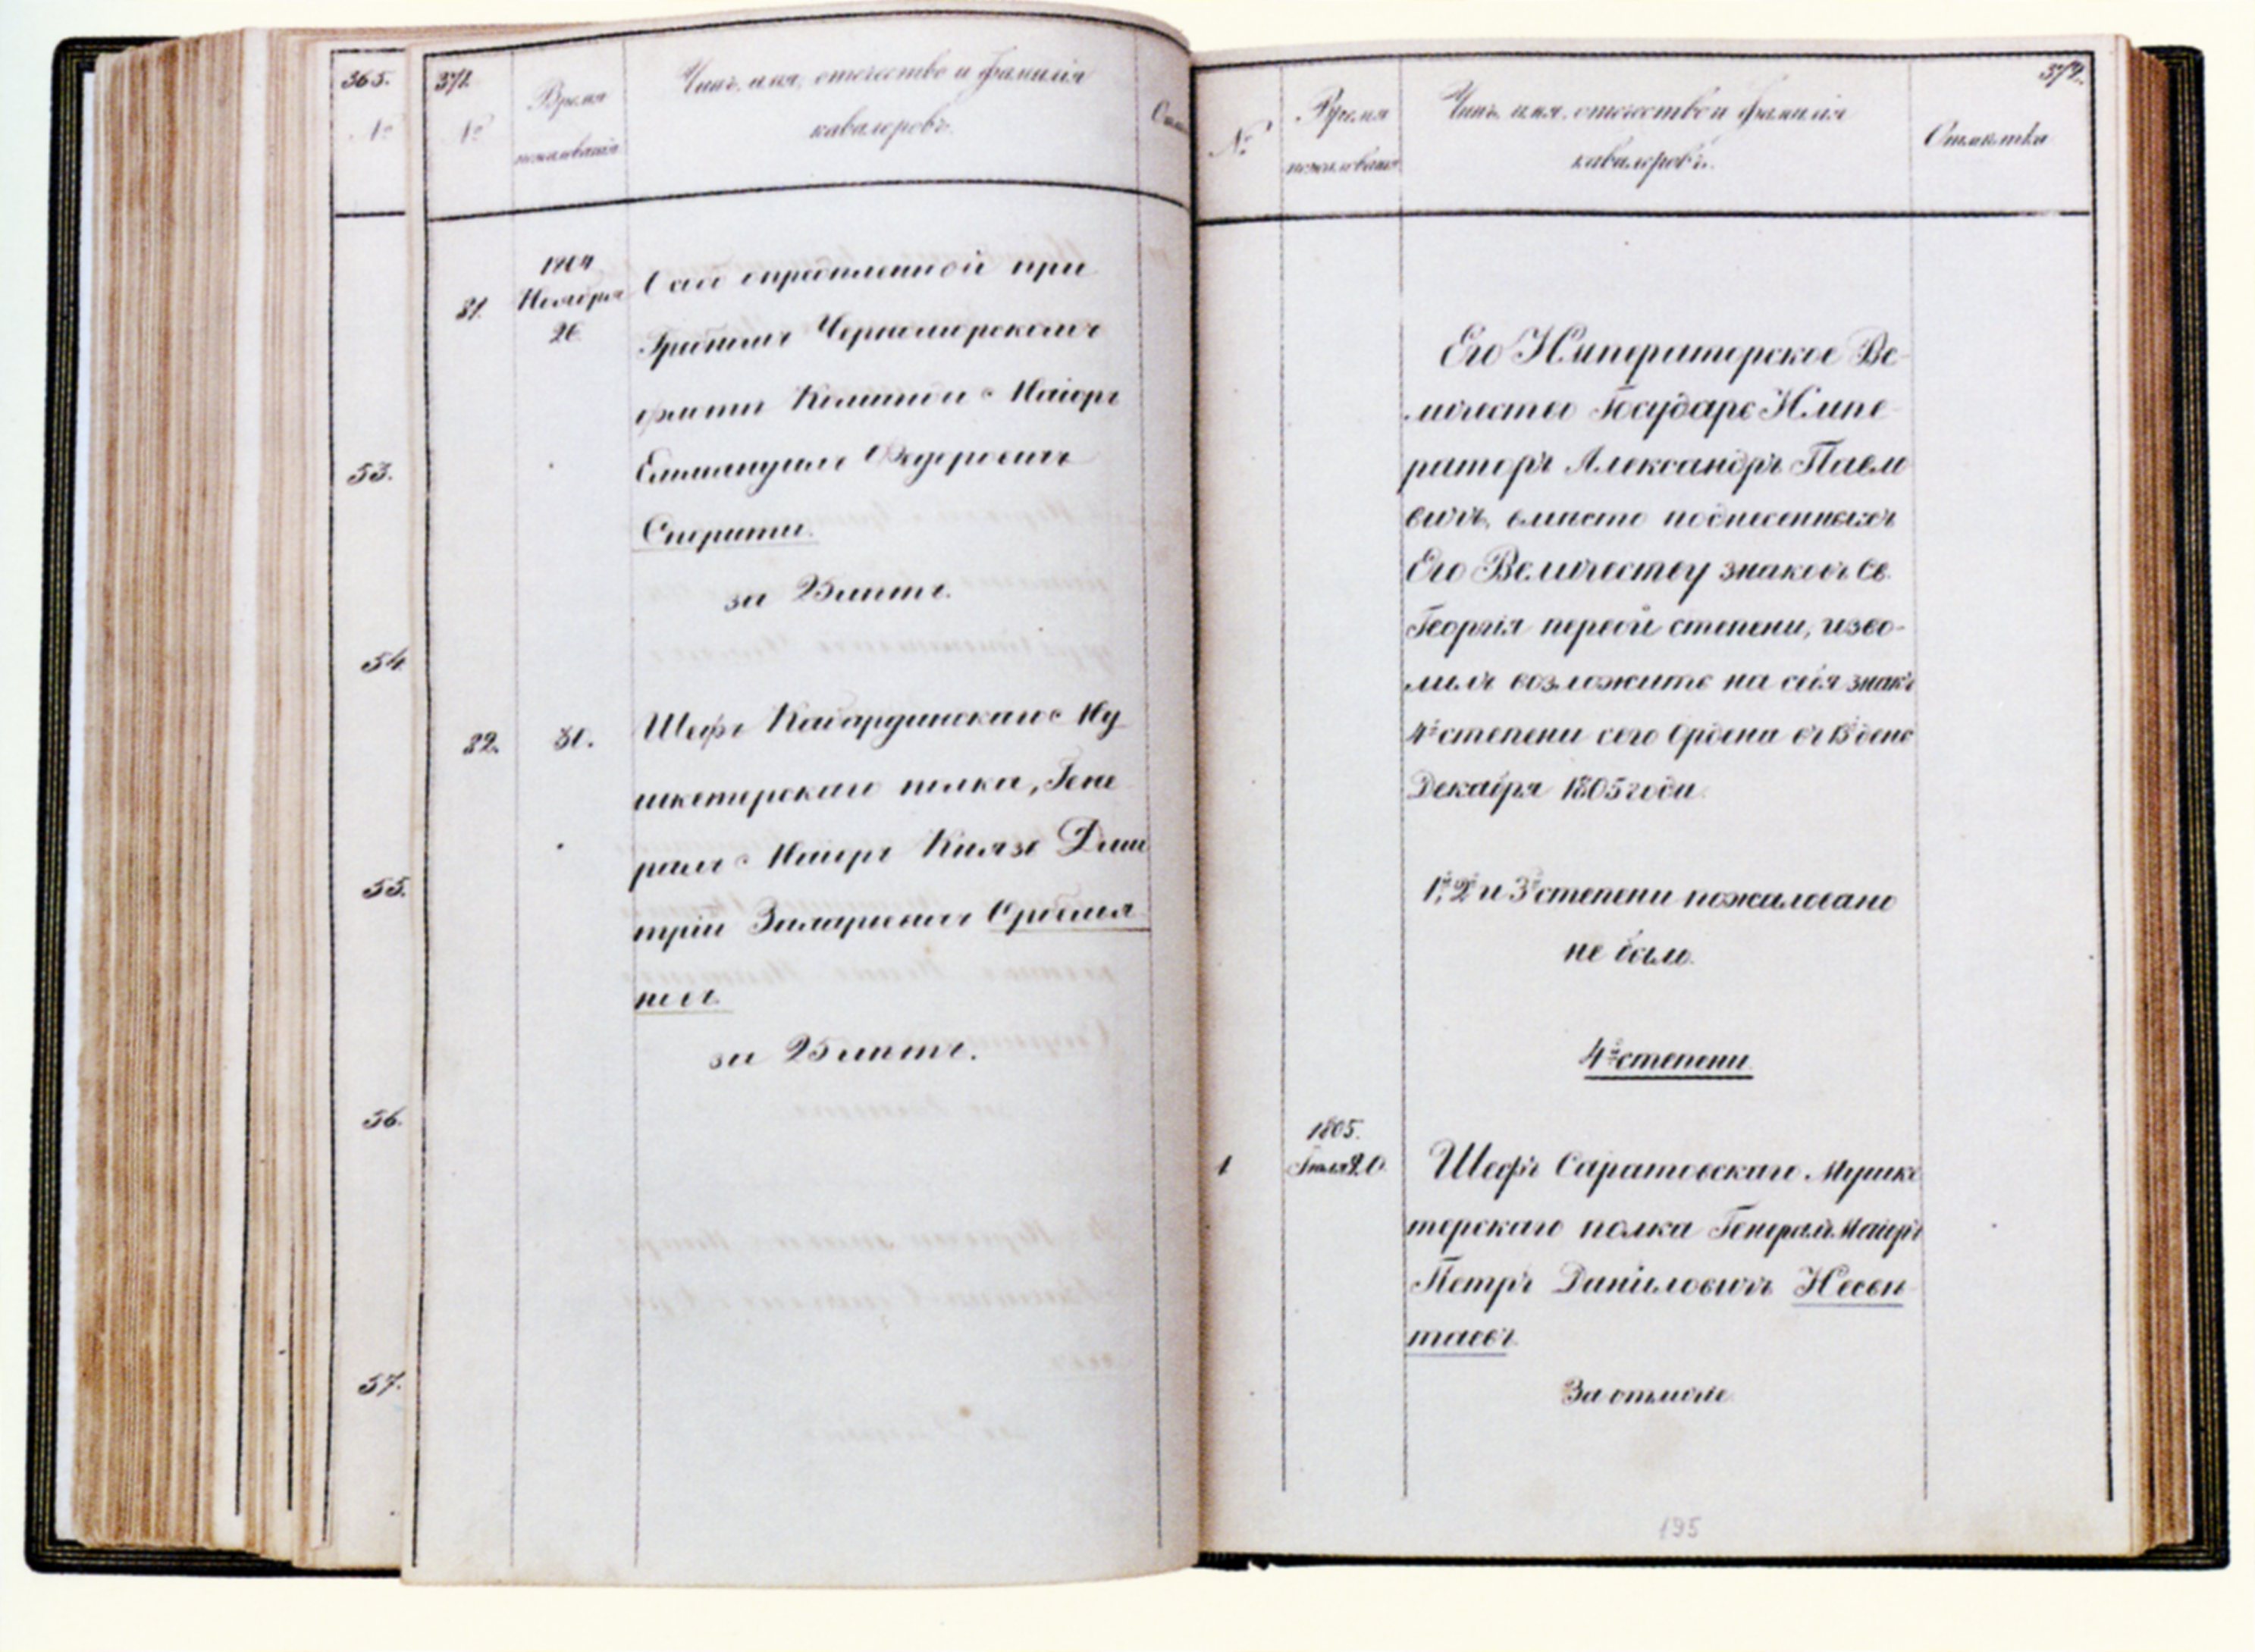 365.
№
53.
54.
55.
56.
57.
371.
№
Время
пожалованія
Чинъ, имя, отчество и фамилія
кавалеровъ.
81.
1804
Ноября
26.
при
Гребномъ Черноморскомъ
флотѣ Команды Маіоръ
Еммануилъ Федоровичъ
Сперати.
за 25 лѣтъ.
82.
30.
Шефъ Кабардинскаго Му
шкетерскаго полка, Гене
ралъ Маіоръ Князь Дми
трій Захарьевичъ Орбелья
новъ.
за 25 лѣтъ.
372.
№
Время
пожалованія
Чинъ, имя, отчество и фамилія
кавалеровъ.
Отмѣтка
Его Императорское Ве-
личество Государь Импе-
раторъ Александръ Павло
вичъ, вмѣсто поднесенныхъ
Его Величеству знаковъ Св.
Георгія первой степени, изво-
лилъ возложить на себя знакъ
4й степени сего Ордена въ 13 день
Декабря 1805 года.
1й, 2й и 3й степени пожаловано
не было.
4й степени
1
1805.
Іюля 20
Шефъ Саратовскаго Мушке
терскаго полка Генералъ Маіоръ
Петръ Даниловичъ Несвѣ-
таевъ.
За отличіе.
195